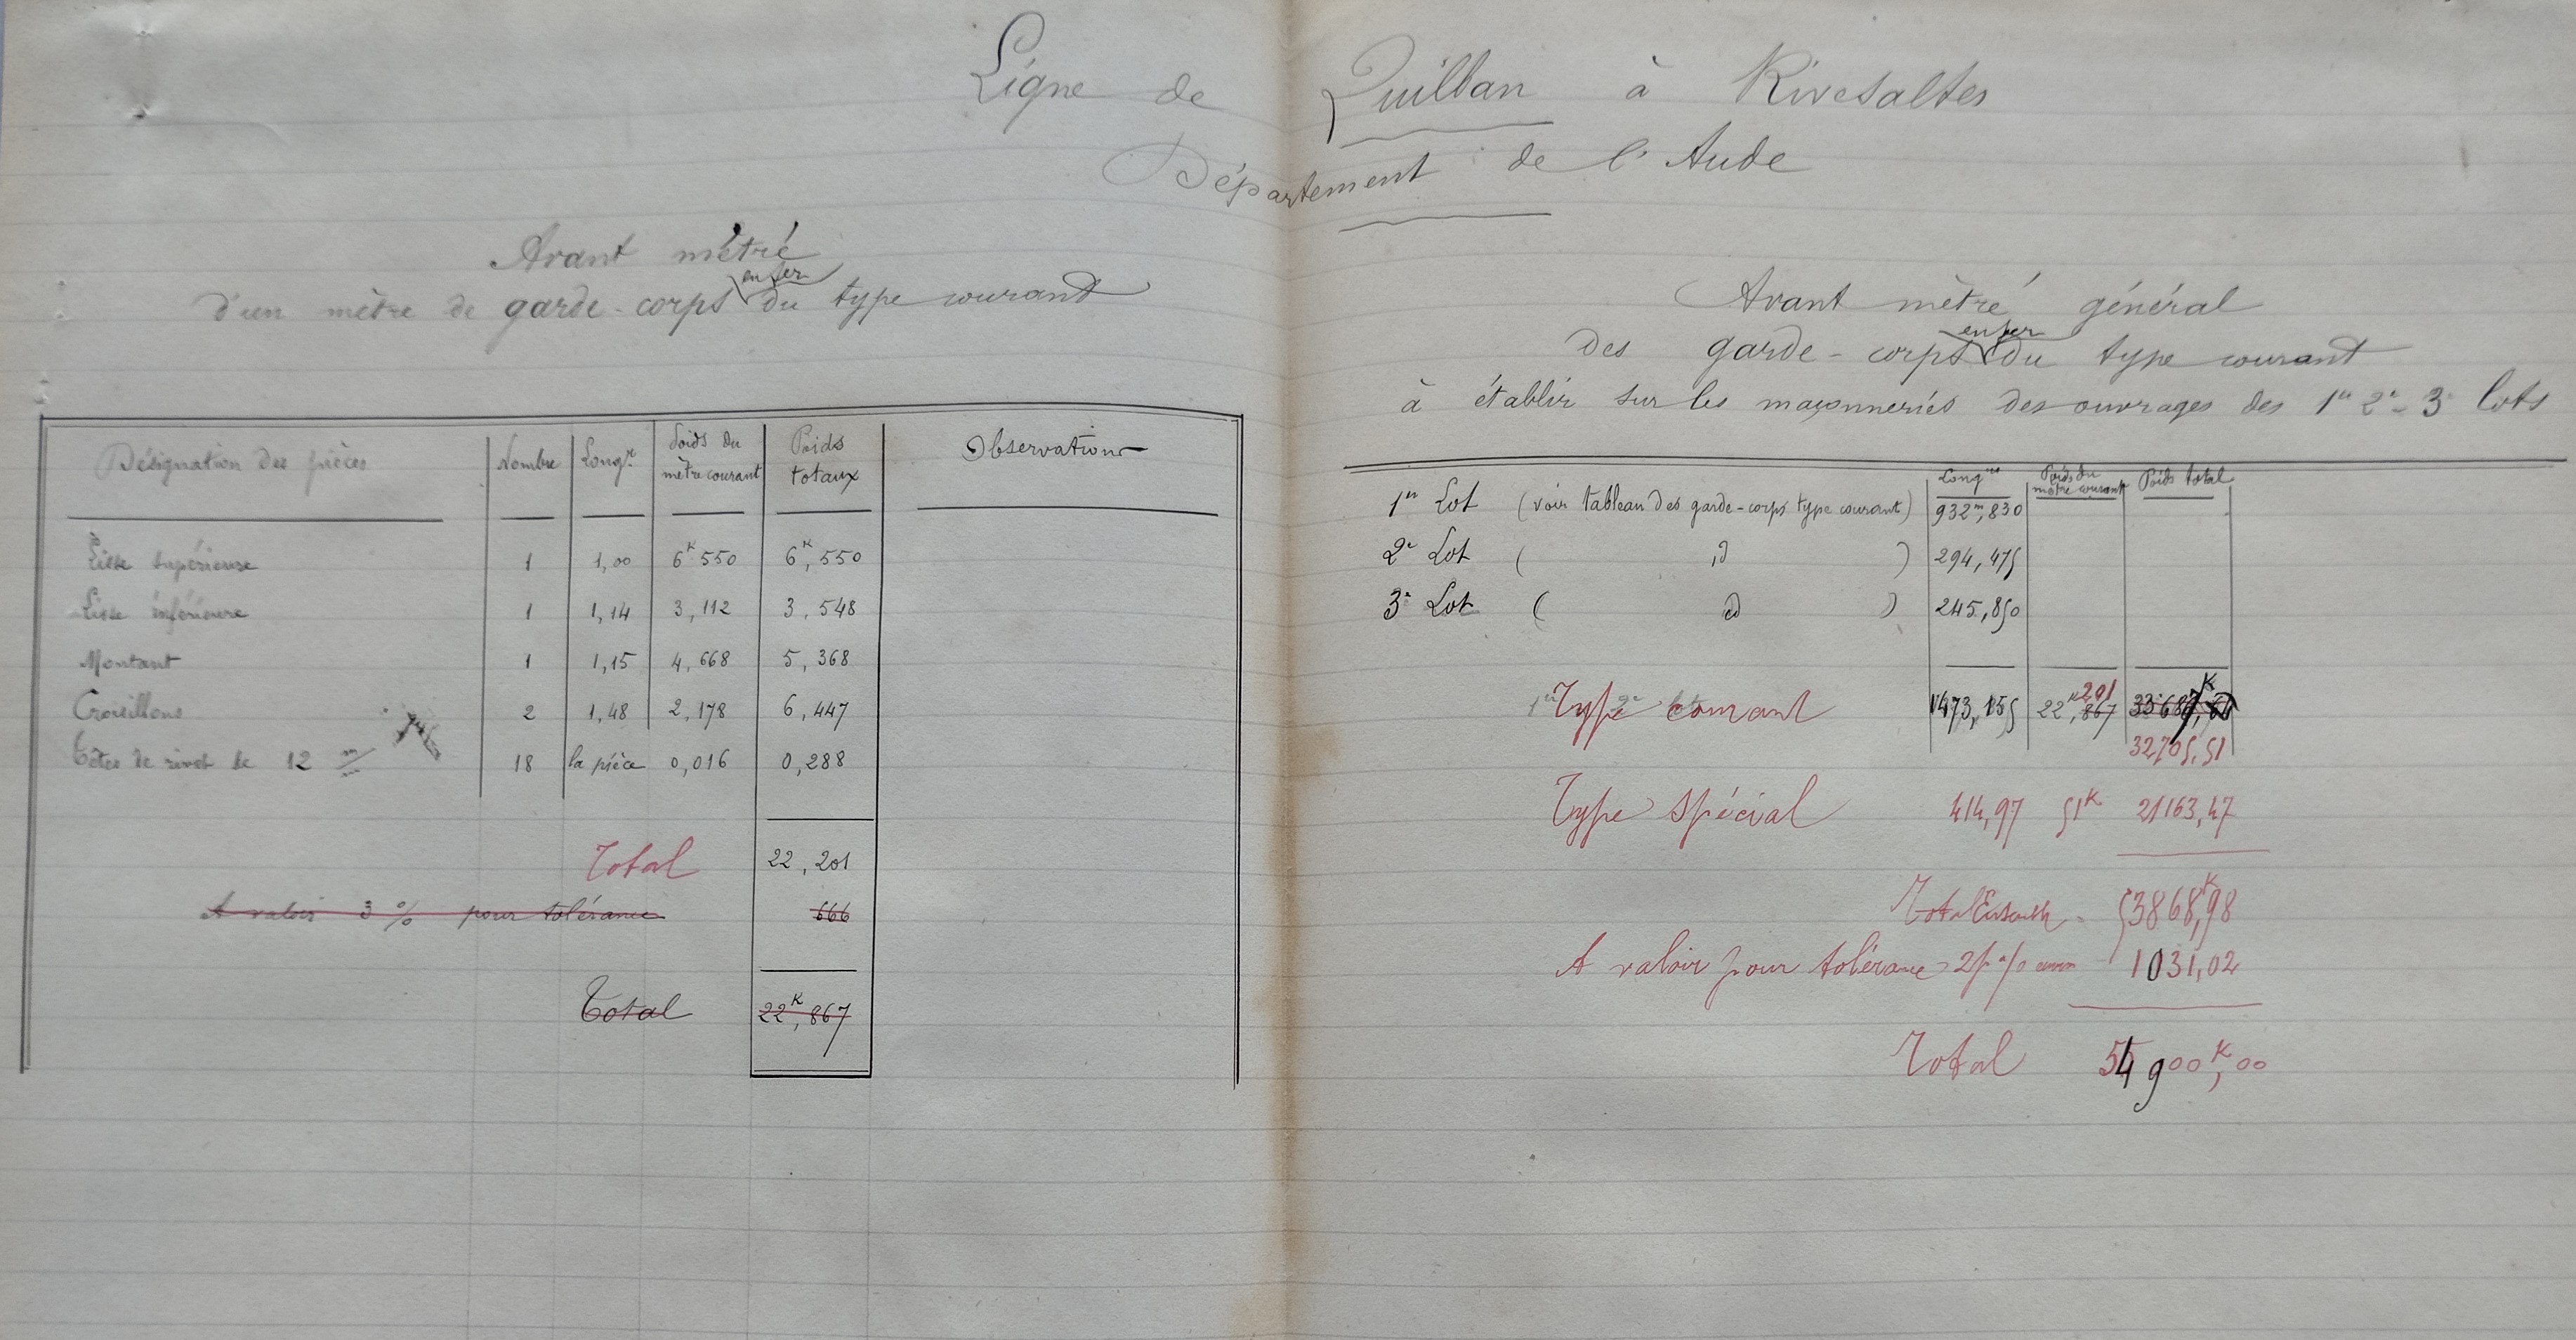 Ligne de Quillan à Rivesaltes
Département de l'Aude
Avant métré
en fer
d'un mètre de garde-corps du type courant
Désignation des pièces Nombre Longr Poids du mètre courant Poids totaux Observations
Lisse supérieure 1 1,00 6K550 6K,550
Lisse inférieure 1 1,14 3,112 3,548
Montant 1 1,15 4,668 5,368
Croisillons 2 1,48 2,178 6,447
Têtes de rivet de 12 m/m 18 la pièce 0,016 0,288
Total 22,201
A valoir 3 % pour tolérance 666
Total 22K,867
Avant métré général
en fer
des garde-corps du type courant
à établir sur les maçonneries des ouvrages des 1er 2e 3e lots
Longrs Poids du mètre courant Poids total
1er Lot (voir tableau des garde-corps type courant) 932m,830
2e Lot ( d ) 294,475
3e Lot ( d ) 245,850
201
Type courant 1473,155 22K,867
32705,51
Type spécial 414,97 51K 21163,47
Total Ensemble 53868K,98
A valoir pour tolérance 2 p % 1031,02
Total 54900K,00